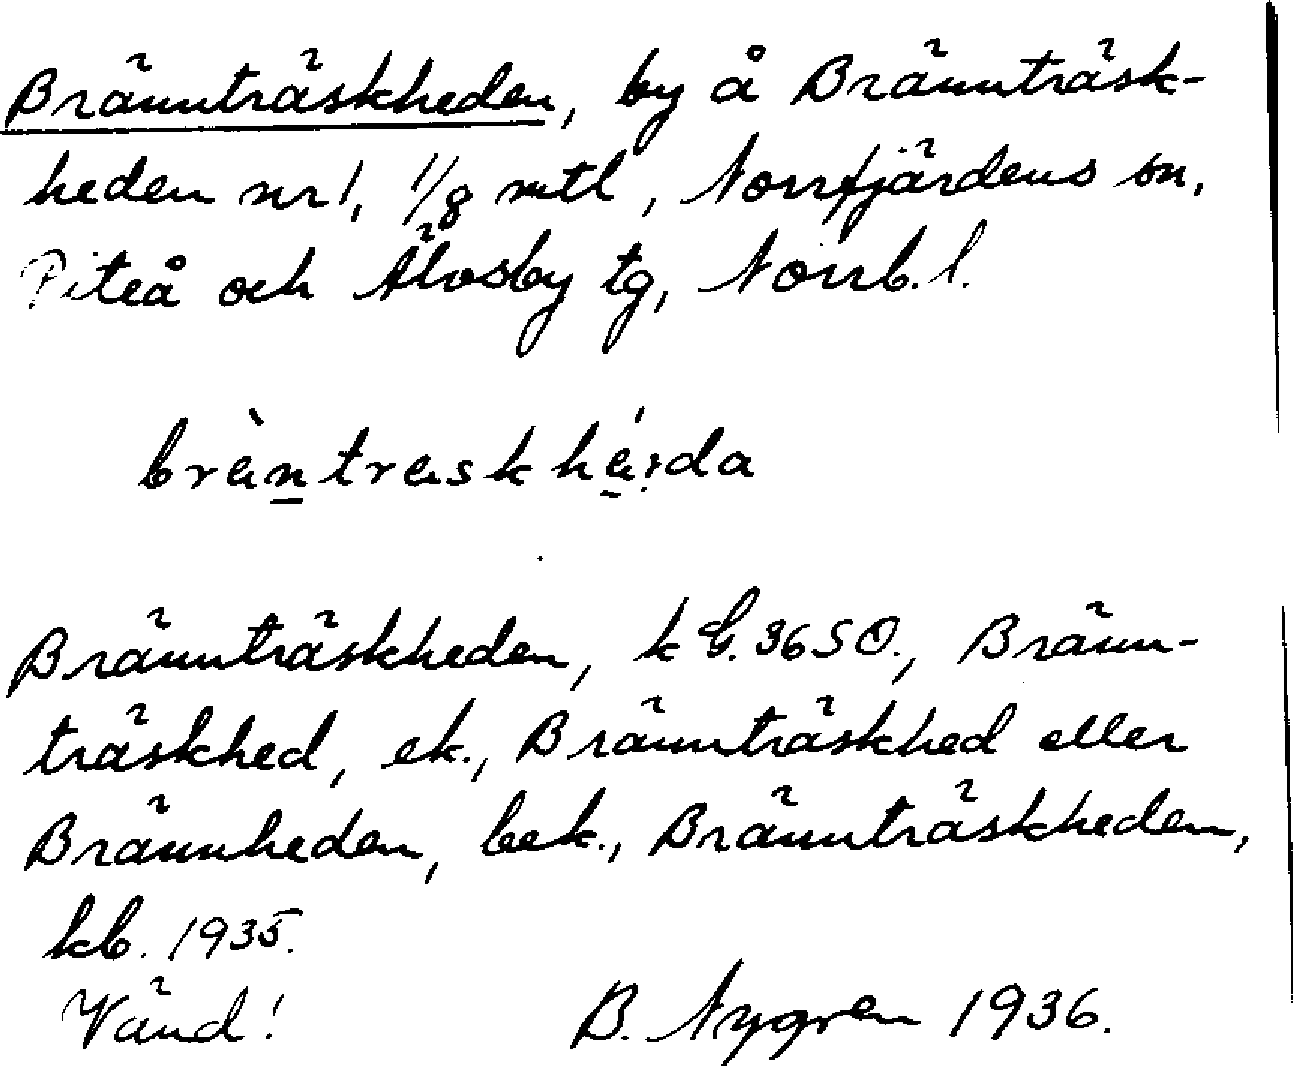 Brännträskheden, by å Brännträsk-
heden nr 1, 1/8 mtl, Norrfjärdens sn,
Piteå och Älvsby tg, Norrb. l.
brèntreskhé:da
Brännträskheden, k G. 3650., Bränn-
träskhed, ek., Brännträskhed eller
Brännheden, bek., Brännträskheden,
kb. 1935.
Vänd!
B. Nygren 1936.